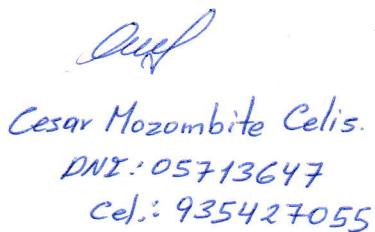 Cesar Mozombite Celis.
DNI: 05713647
Cel.: 935427055